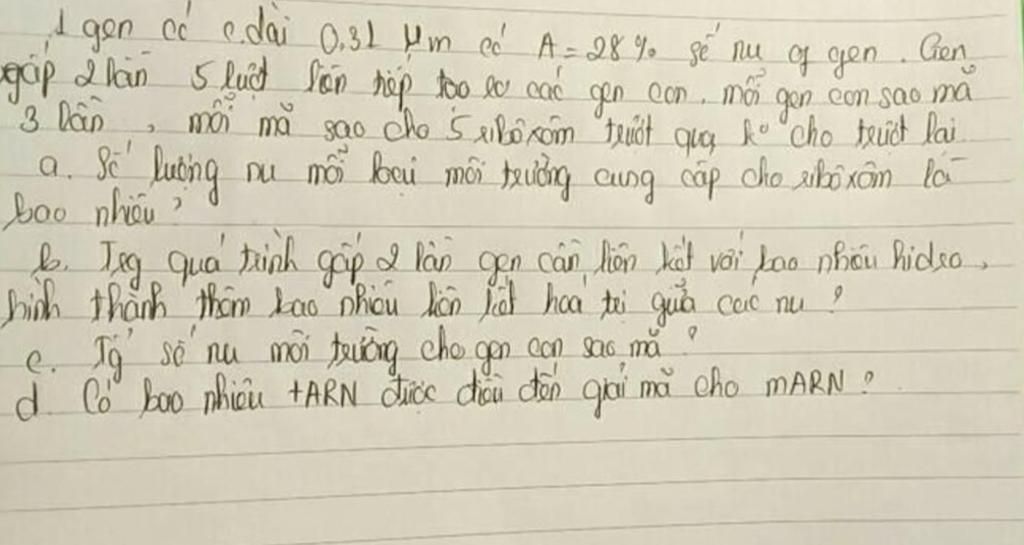 1 gen có c.dài 0,31 µm có A = 28% số nu of gen. Gen
gấp 2 lần 5 lượt liên tiếp tạo ra các gen con. mỗi gen con sao mã
3 lần, mỗi mã sao cho 5 ribôxôm trượt qua k° cho trượt lại
a. Số lượng nu mỗi loại môi trường cung cấp cho ribôxôm là
bao nhiêu?
b. Trg quá trình gấp 2 lần gen cần liên kết với bao nhiêu hidro,
hình thành thêm bao nhiêu liên kết hoá trị giữa các nu?
c. Tg số nu môi trường cho gen con sao mã?
d. Có bao nhiêu tARN được điều đến giải mã cho mARN?